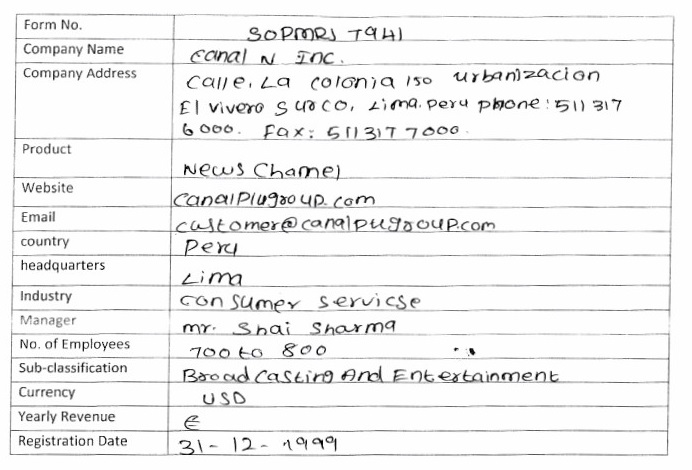 Form No. SOPMRJ 7941
Company Name Canal N Inc.
Company Address Calle, La colonia 150 urbanizacion
El vivero surco, Lima.peru phone: 511 317
6000. Fax: 511317 7000.
Product News Channel
Website canalplugroup.com
Email customer@canalpugroup.com
country Peru
headquarters Lima
Industry consumer servicse
Manager mr. Shai Sharma
No. of Employees 700 to 800
Sub-classification Broadcasting And Entertainment
Currency USD
Yearly Revenue €
Registration Date 31-12-1999